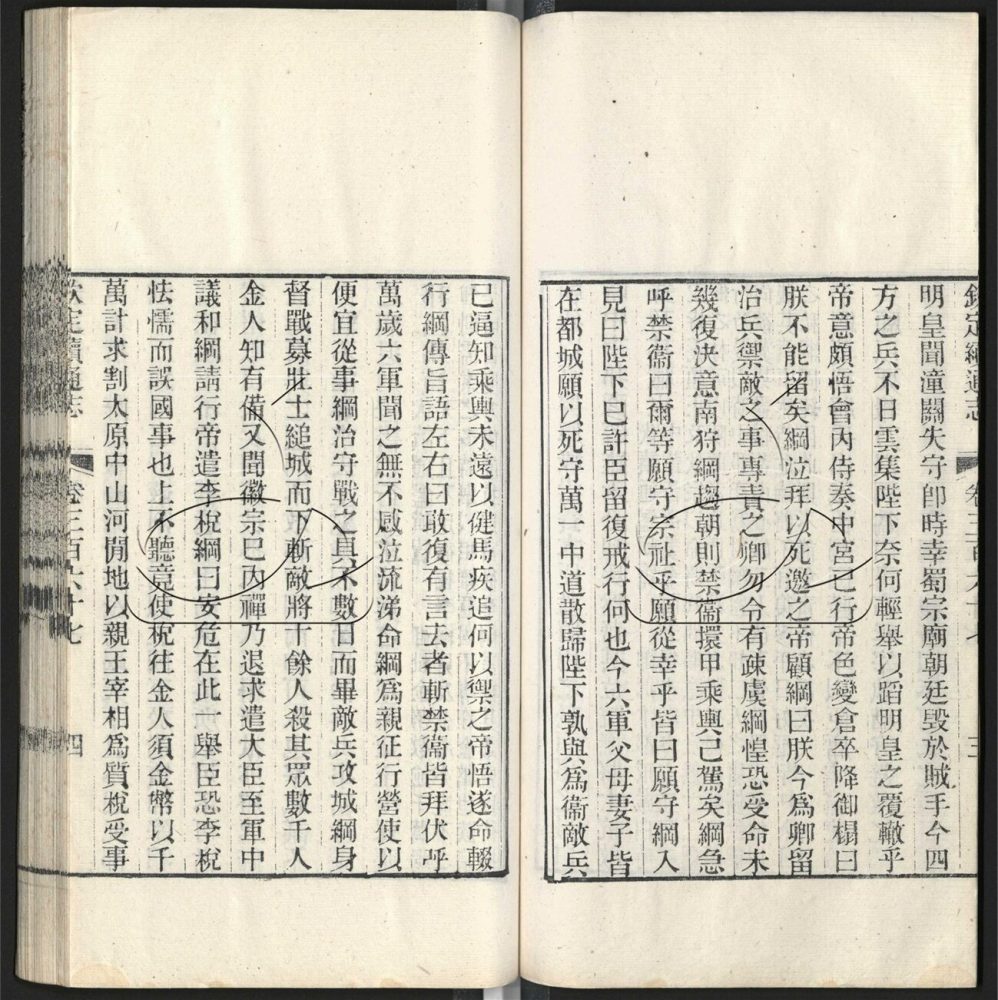 欽定續通志 卷三百六十七 三
明皇聞潼關失守卽時幸蜀宗廟朝廷毀於賊手今四
方之兵不日雲集陛下奈何輕舉以蹈明皇之覆轍乎
帝意頗悟會內侍奏中宮已行帝色變倉卒降御榻曰
朕不能留矣綱泣拜以死邀之帝顧綱曰朕今爲卿留
治兵禦敵之事專責之卿勿令有疎虞綱惶恐受命未
幾復決意南狩綱趨朝則禁衞擐甲乘輿已駕矣綱急
呼禁衞曰爾等願守宗社乎願從幸乎皆曰願守綱入
見曰陛下已許臣留復戒行何也今六軍父母妻子皆
在都城願以死守萬一中道散歸陛下孰與爲衞敵兵
已逼知乘輿未遠以健馬疾追何以禦之帝悟遂命輟
行綱傳旨語左右曰敢復有言去者斬禁衞皆拜伏呼
萬歲六軍聞之無不感泣流涕命綱爲親征行營使以
便宜從事綱治守戰之具不數日而畢敵兵攻城綱身
督戰募壯士縋城而下斬敵將十餘人殺其眾數千人
金人知有備又聞徽宗已內禪乃退求遣大臣至軍中
議和綱請行帝遣李梲綱曰安危在此一舉臣恐李梲
怯懦而誤國事也上不聽竟使梲往金人須金幣以千
萬計求割太原中山河閒地以親王宰相爲質梲受事
欽定續通志 卷三百六十七 四